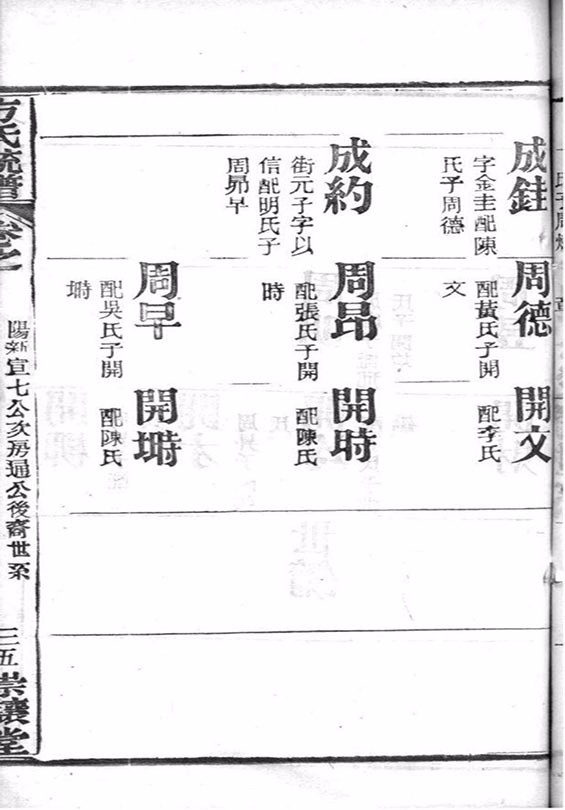 成銈
字金圭配陳
氏子周德
周德
配黃氏子開
文
開文
配李氏
成約
街元子字以
信配明氏子
周昴早
周昴
配張氏子開
時
開時
配陳氏
周早
配吳氏子開
塒
開塒
配陳氏
方氏統譜
卷之
陽新宣七公亥房通公後裔世系
三五
崇讓堂